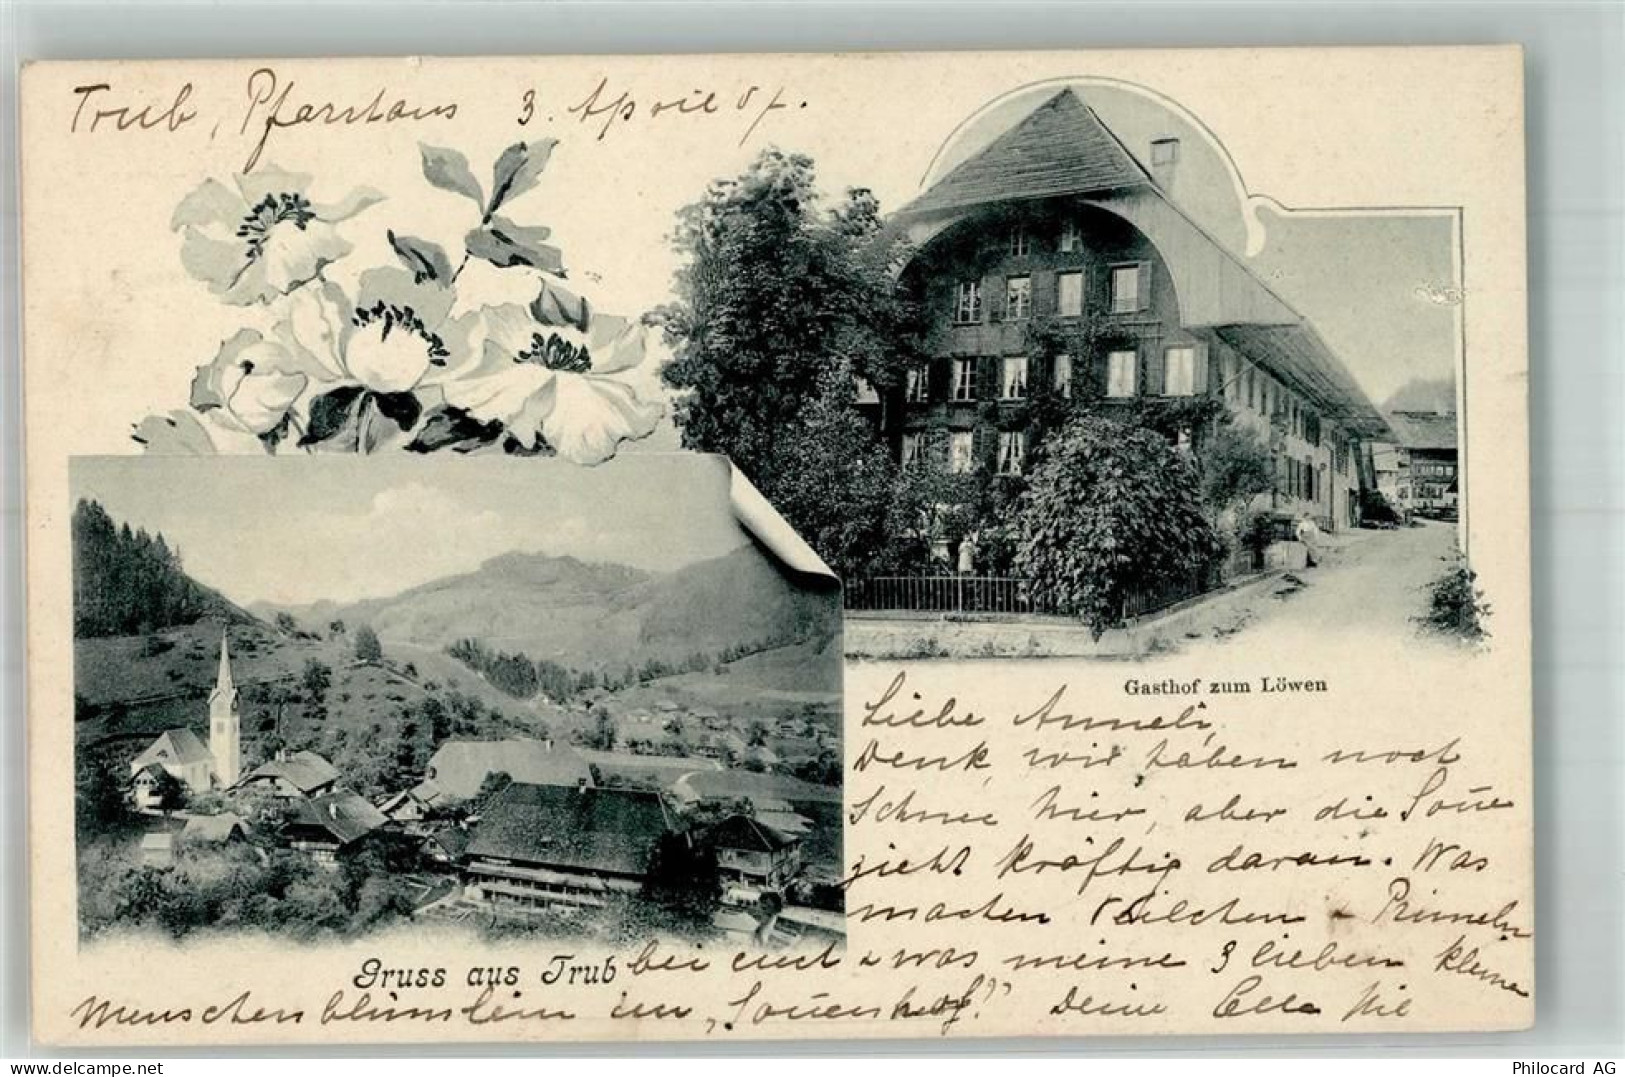 Trub, Pfarrhaus 3. April 07.
Gasthof zum Löwen
Liebe Anneli,
Denk, wir haben noch
Schnee hier, aber die Sonne
zieht kräftig daran. Was
machen Veilchen & Primeln
Gruss aus Trub
bei euch & was meine 3 lieben kleinen
Menschenblümlein im "Sonnenhof"? Deine
delcampe.net
Philocard AG